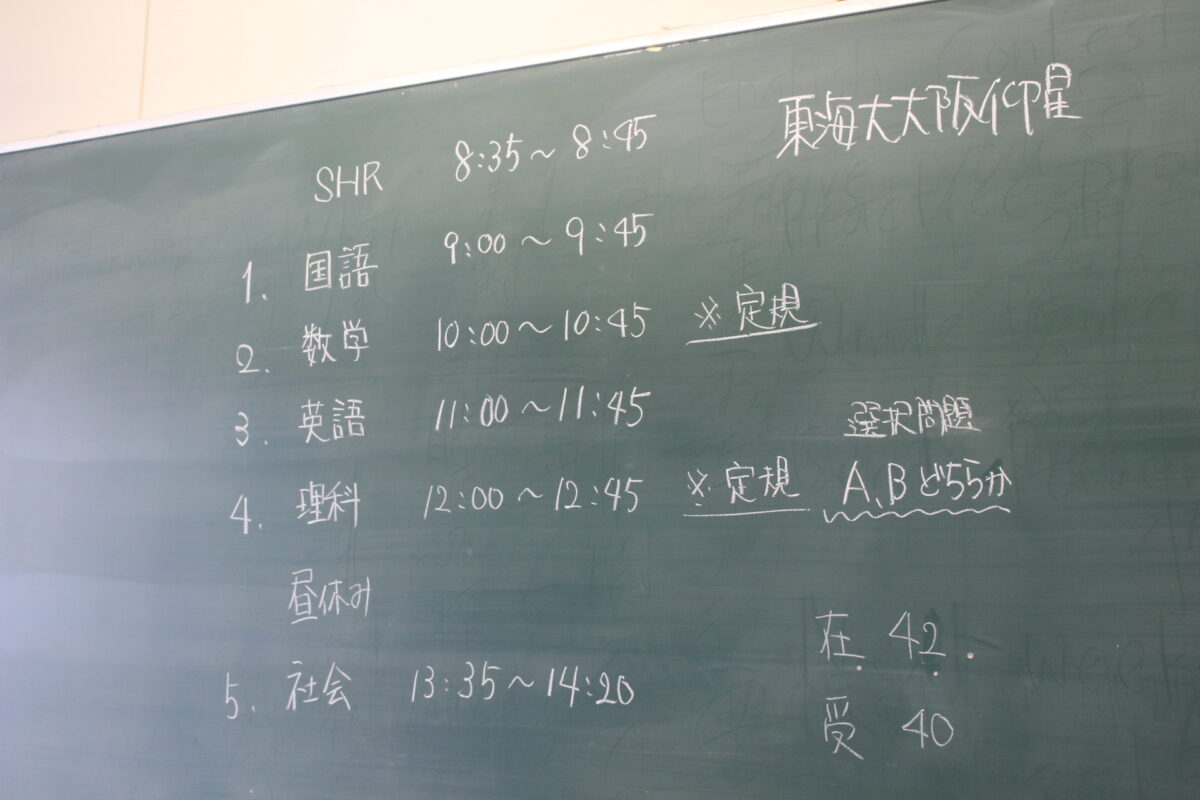 東海大大阪仰星
SHR 8:35~8:45
1. 国語 9:00~9:45
2. 数学 10:00~10:45 ※定規
3. 英語 11:00~11:45
4. 理科 12:00~12:45 ※定規
選択問題
A、Bどちらか
昼休み
5. 社会 13:35~14:20
在 42
受 40